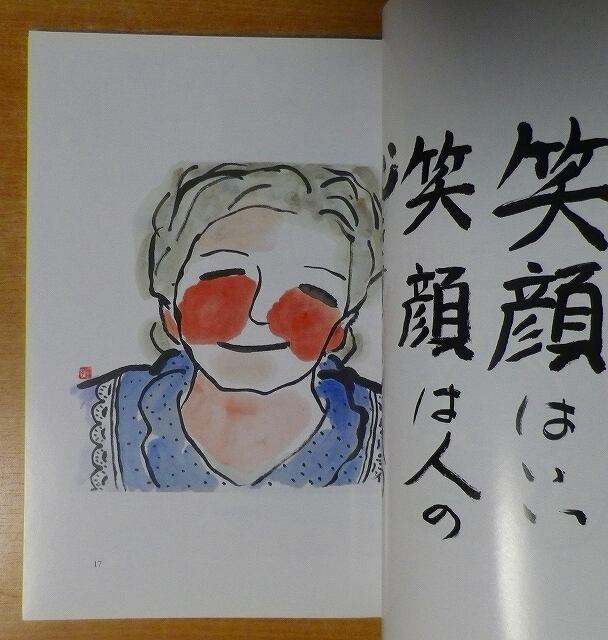 笑顔はいい
笑顔は人の
17